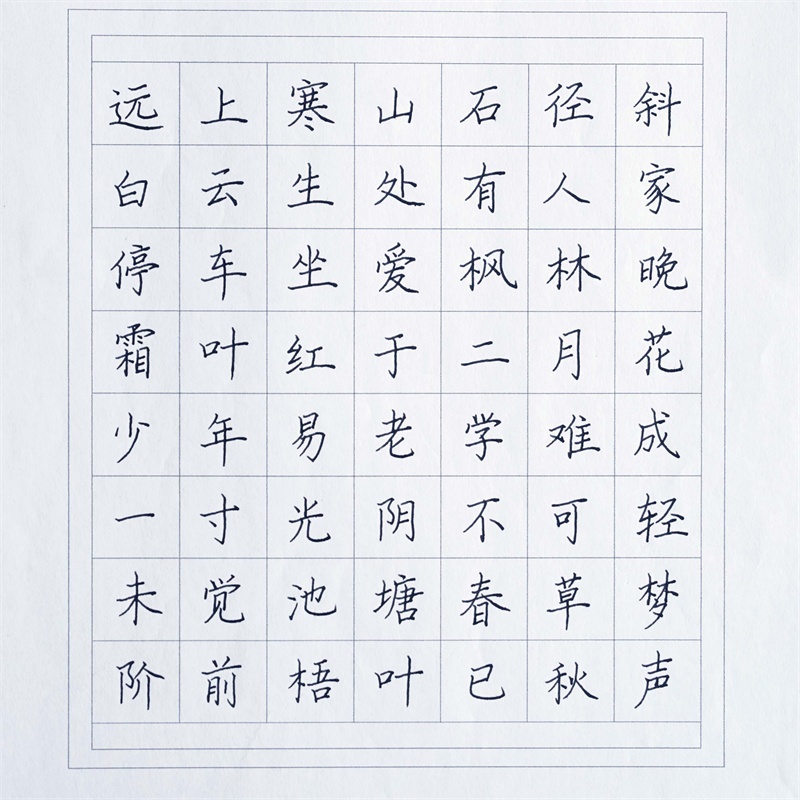 远上寒山石径斜
白云生处有人家
停车坐爱枫林晚
霜叶红于二月花
少年易老学难成
一寸光阴不可轻
未觉池塘春草梦
阶前梧叶已秋声